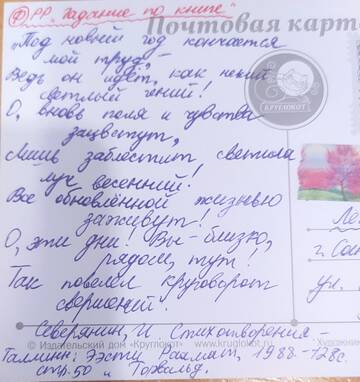 ФРР. Задание по книге"
Почтовая карт
„Под новый год кончается
мой труд, –
Ведь он идёт, как некий
светлый гений!
О, вновь поля и чувства
зацветут,
Лишь заблестит светила
луч весенний!
Все обновлённой жизнью
заживут!
О, эти дни! Вы – близко,
рядом, тут!
Так повелел круговорот
свершений.
КРУГЛОКОТ
г. Сан
ул.
Северянин, И. Стихотворения –
© Издательский дом «Круглокот» www.kruglokot.ru
Художник
Таллинн: Ээсти Раамат, 1988 – 128с.
стр. 50